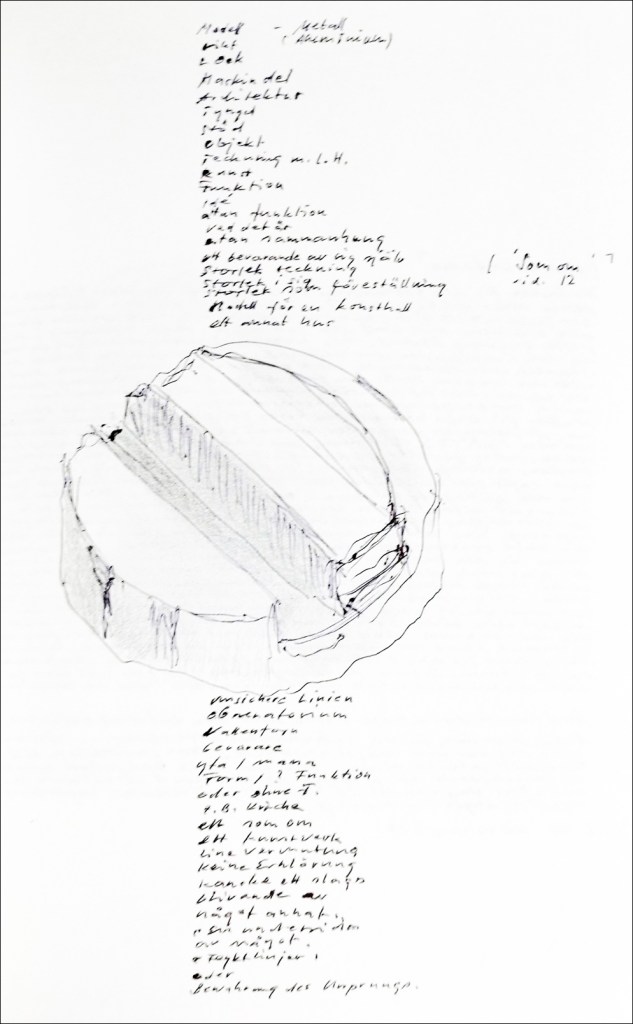 Modell - Metall
vikt (Aluminium)
Lock
Maskindel
Arkitektur
Tyngd
stöd
objekt
Teckning m. L.H.
Kunst
Funktion
idé
utan funktion
vad det är
utan sammanhang
ett bevarande av sig själv
Storlek teckning ( 'Som om' )
Storlek i sig sid. 12
Storlek som föreställning
Modell för en konsthall
ett annat hus
unsichere Linien
observatorium
Vattentorn
bevarare
yta / massa
Form / ? Funktion
oder ohne F.
z.B. Kirche
ett som om
ett kunstverk
eine Vermuthung
keine Erklärung
kanske ett slags
blivande av
något annat.
av något.
oder
Bewahrung des Ursprungs.